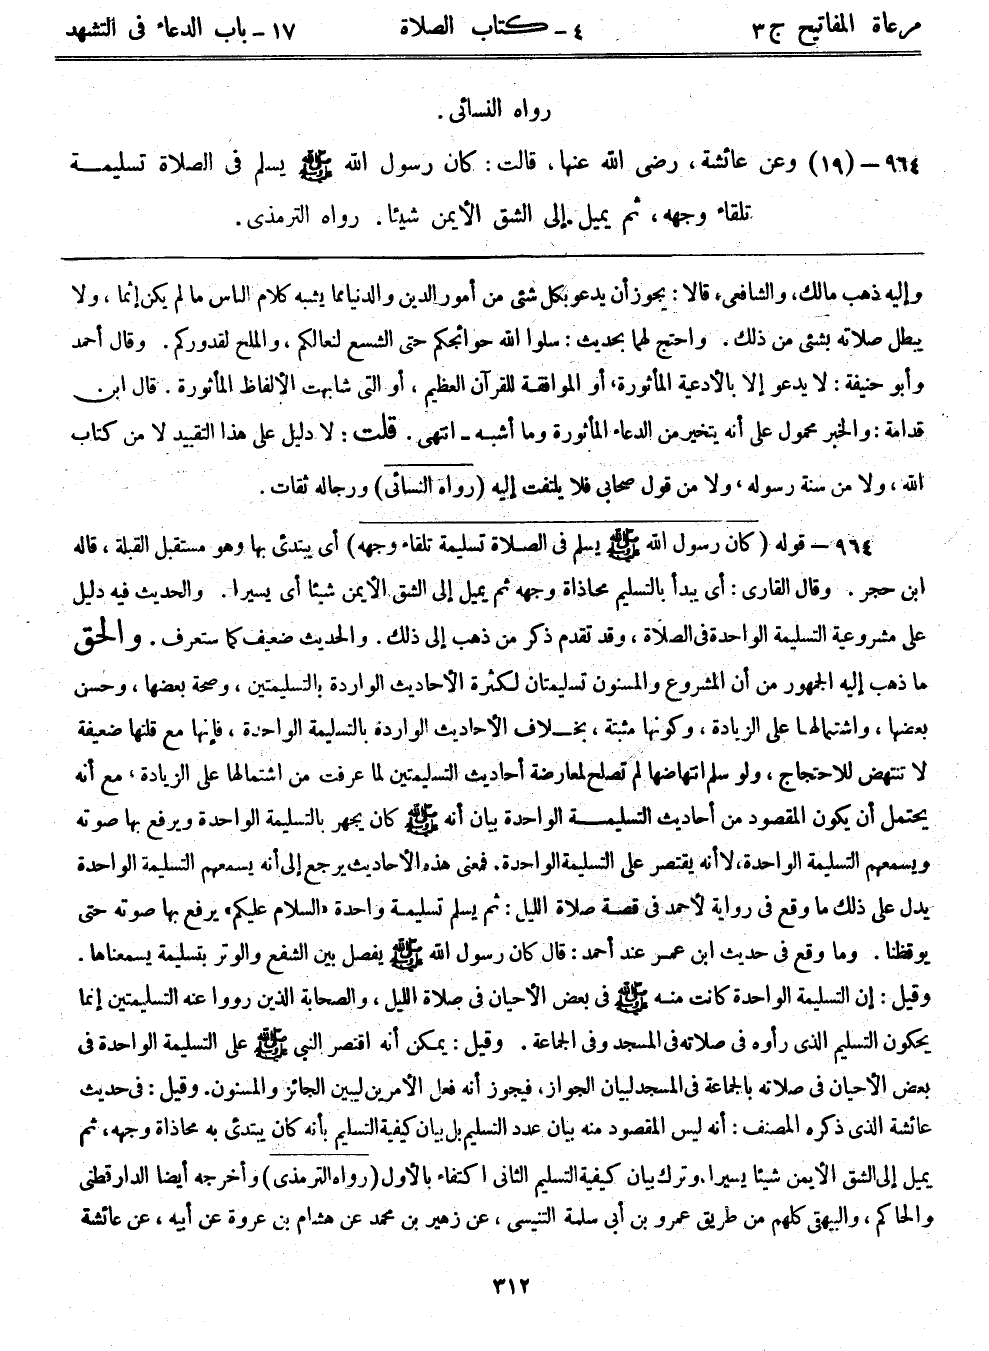 مرعاة المفاتيح ج ٣
٤ - كتاب الصلاة
١٧ - باب الدعاء فى التشهد
رواه النسائى .
٩٦٤ – (١٩) وعن عائشة ، رضى الله عنها، قالت : كان رسول الله ﷺ يسلم فى الصلاة تسليمة
تلقاء وجهه ، ثم يميل إلى الشق الأيمن شيئا . رواه الترمذى .
وإليه ذهب مالك، والشافعى، قالا : يجوز أن يدعو بكل شئى من أمور الدين والدنيا مما يشبه كلام الناس ما لم يكن إثما ، ولا
يبطل صلاته بشئى من ذلك . واحتج لهما بحديث : سلوا الله حوائجكم حتى الشسع لنعالكم ، والملح لقدوركم . وقال أحمد
وأبو حنيفة : لا يدعو إلا بالأدعية المأثورة، أو الموافقة للقرآن العظيم ، أو التى شابهت الألفاظ المأثورة . قال ابن
قدامة : والخبر محمول على أنه يتخير من الدعاء المأثورة وما أشبه ـ انتهى . قلت : لا دليل على هذا التقييد لا من كتاب
الله ، ولا من سنة رسوله ، ولا من قول صحابى فلا يلتفت إليه (رواه النسائى) ورجاله ثقات .
٩٦٤ – قوله (كان رسول الله ﷺ يسلم فى الصلاة تسليمة تلقاء وجهه) أى يبتدئ بها وهو مستقبل القبلة ، قاله
ابن حجر . وقال القارى : أى يبدأ بالتسليم محاذاة وجهه ثم يميل إلى الشق الأيمن شيئا أى يسيرا . والحديث فيه دليل
على مشروعية التسليمة الواحدة فى الصلاة ، وقد تقدم ذكر من ذهب إلى ذلك . والحديث ضعيف كما ستعرف . والحق
ما ذهب إليه الجمهور من أن المشروع والمسنون تسليمتان لكثرة الأحاديث الواردة بالتسليمتين ، وصحة بعضها ، وحسن
بعضها ، واشتمالها على الزيادة ، وكونها مثبتة ، بخلاف الأحاديث الواردة بالتسليمة الواحدة ، فإنها مع قلتها ضعيفة
لا تنتهض للاحتجاج ، ولو سلم انتهاضها لم تصلح لمعارضة أحاديث التسليمتين لما عرفت من اشتمالها على الزيادة ، مع أنه
يحتمل أن يكون المقصود من أحاديث التسليمة الواحدة بيان أنه ﷺ كان يجهر بالتسليمة الواحدة ويرفع بها صوته
ويسمعهم التسليمة الواحدة، لا أنه يقتصر على التسليمة الواحدة. فمعنى هذه الأحاديث يرجع إلى أنه يسمعهم التسليمة الواحدة
يدل على ذلك ما وقع فى رواية لأحمد فى قصة صلاة الليل : ثم يسلم تسليمة واحدة «السلام عليكم» يرفع بها صوته حتى
يوقظنا . وما وقع فى حديث ابن عمر عند أحمد : قال كان رسول الله ﷺ يفصل بين الشفع والوتر بتسليمة يسمعناها .
وقيل : إن التسليمة الواحدة كانت منه ﷺ فى بعض الأحيان فى صلاة الليل ، والصحابة الذين رووا عنه التسليمتين إنما
يحكون التسليم الذى رأوه فى صلاته فى المسجد وفى الجماعة . وقيل : يمكن أنه اقتصر النبى ﷺ على التسليمة الواحدة فى
بعض الأحيان فى صلاته بالجماعة فى المسجد لبيان الجواز، فيجوز أنه فعل الأمرين ليبين الجائز والمسنون. وقيل : فى حديث
عائشة الذى ذكره المصنف : أنه ليس المقصود منه بيان عدد التسليم بل بيان كيفية التسليم بأنه كان يبتدئ به محاذاة وجهه، ثم
يميل إلى الشق الأيمن شيئا يسيرا. وترك بيان كيفية التسليم الثانى اكتفاء بالأول (رواه الترمذى) وأخرجه أيضا الدارقطنى
والحاكم ، والبيهقى كلهم من طريق عمرو بن أبى سلمة التنيسى ، عن زهير بن محمد عن هشام بن عروة عن أبيه ، عن عائشة
٣١٢